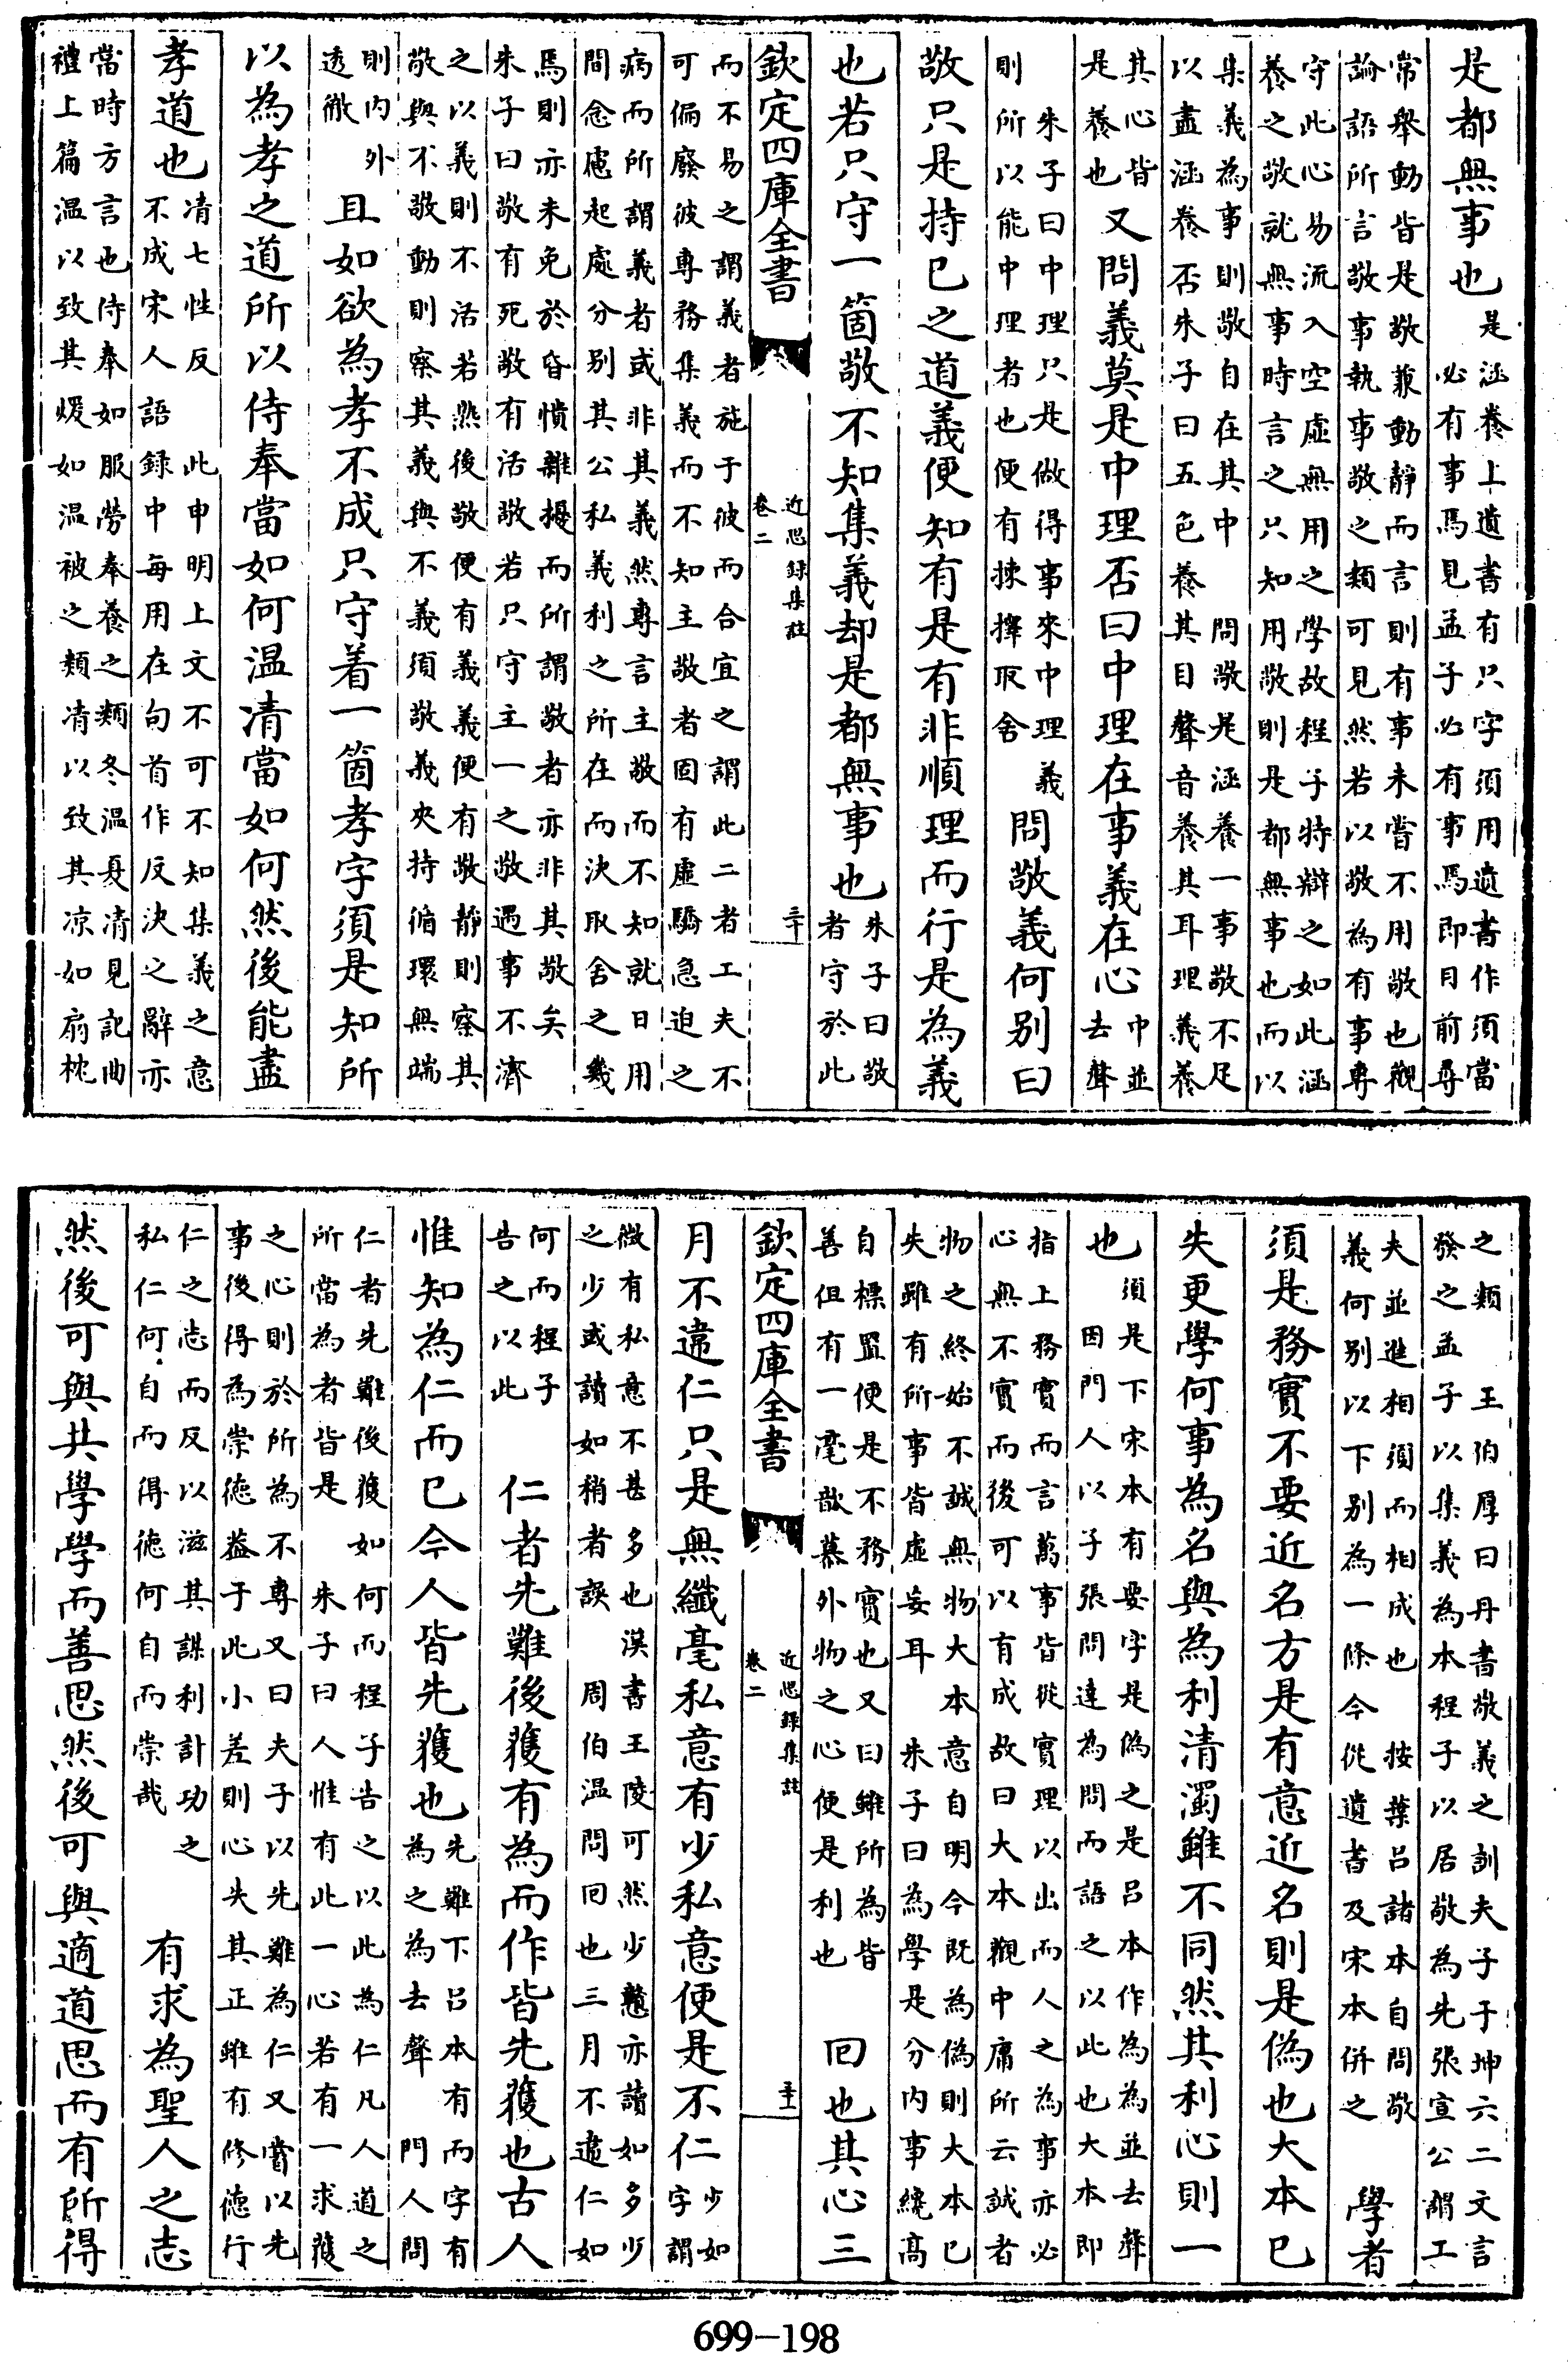 是都無事也是涵養上遺書有只字須用遺書作須當
必有事焉見孟子必有事焉即目前尋
常舉動皆是敬兼動靜而言則有事未嘗不用敬也觀
論語所言敬事執事敬之類可見然若以敬為有事專
守此心易流入空虛無用之學故程子特辯之如此涵
養之敬就無事時言之只知用敬則是都無事也而以
集義為事則敬自在其中 問敬是涵養一事敬不足
以盡涵養否朱子曰五色養其目聲音養其耳理義養
其心皆
是養也又問義莫是中理否曰中理在事義在心中並
去聲
朱子曰中理只是做得事來中理義
則所以能中理者也便有揀擇取舍問敬義何别曰
敬只是持己之道義便知有是有非順理而行是為義
也若只守一箇敬不知集義却是都無事也朱子曰敬
者守於此
欽定四庫全書 近思錄集註 卷二 三十
而不易之謂義者施于彼而合宜之謂此二者工夫不
可偏廢彼專務集義而不知主敬者固有虛驕急迫之
病而所謂義者或非其義然專言主敬而不知就日用
間念慮起處分别其公私義利之所在而決取舍之幾
焉則亦未免於昏憒雜擾而所謂敬者亦非其敬矣
朱子曰敬有死敬有活敬若只守主一之敬遇事不濟
之以義則不活若熟後敬便有義義便有敬靜則察其
敬與不敬動則察其義與不義須敬義夾持循環無端
則内外
透徹且如欲為孝不成只守着一箇孝字須是知所
以為孝之道所以侍奉當如何温凊當如何然後能盡
孝道也凊七性反 此申明上文不可不知集義之意
不成宋人語錄中每用在句首作反決之辭亦
當時方言也侍奉如服勞奉養之類冬温夏凊見記曲
禮上篇温以致其煖如温被之類凊以致其凉如扇枕
之類 王伯厚曰丹書敬義之訓夫子于坤六二文言
發之孟子以集義為本程子以居敬為先張宣公謂工
夫並進相須而相成也 按葉呂諸本自問敬
義何别以下别為一條今從遺書及宋本併之學者
須是務實不要近名方是有意近名則是偽也大本已
失更學何事為名與為利清濁雖不同然其利心則一
也須是下宋本有要字是偽之是呂本作為為並去聲
因門人以子張問達為問而語之以此也大本即
指上務實而言萬事皆從實理以出而人之為事亦必
心無不實而後可以有成故曰大本觀中庸所云誠者
物之終始不誠無物大本意自明今既為偽則大本已
失雖有所事皆虛妄耳 朱子曰為學是分内事纔高
自標置便是不務實也又曰雖所為皆
善但有一毫歆慕外物之心便是利也回也其心三
欽定四庫全書 近思錄集註 卷二 三十一
月不違仁只是無纖毫私意有少私意便是不仁少如
字謂
微有私意不甚多也漢書王陵可然少戇亦讀如多少
之少或讀如稍者誤 周伯温問回也三月不違仁如
何而程子
告之以此仁者先難後獲有為而作皆先獲也古人
惟知為仁而已今人皆先獲也先難下呂本有而字有
為之為去聲 門人問
仁者先難後獲如何而程子告之以此為仁凡人道之
所當為者皆是 朱子曰人惟有此一心若有一求獲
之心則於所為不專又曰夫子以先難為仁又嘗以先
事後得為崇德蓋于此小差則心失其正雖有修德行
仁之志而反以滋其謀利計功之
私仁何自而得德何自而崇哉有求為聖人之志
然後可與共學學而善思然後可與適道思而有所得
699-198